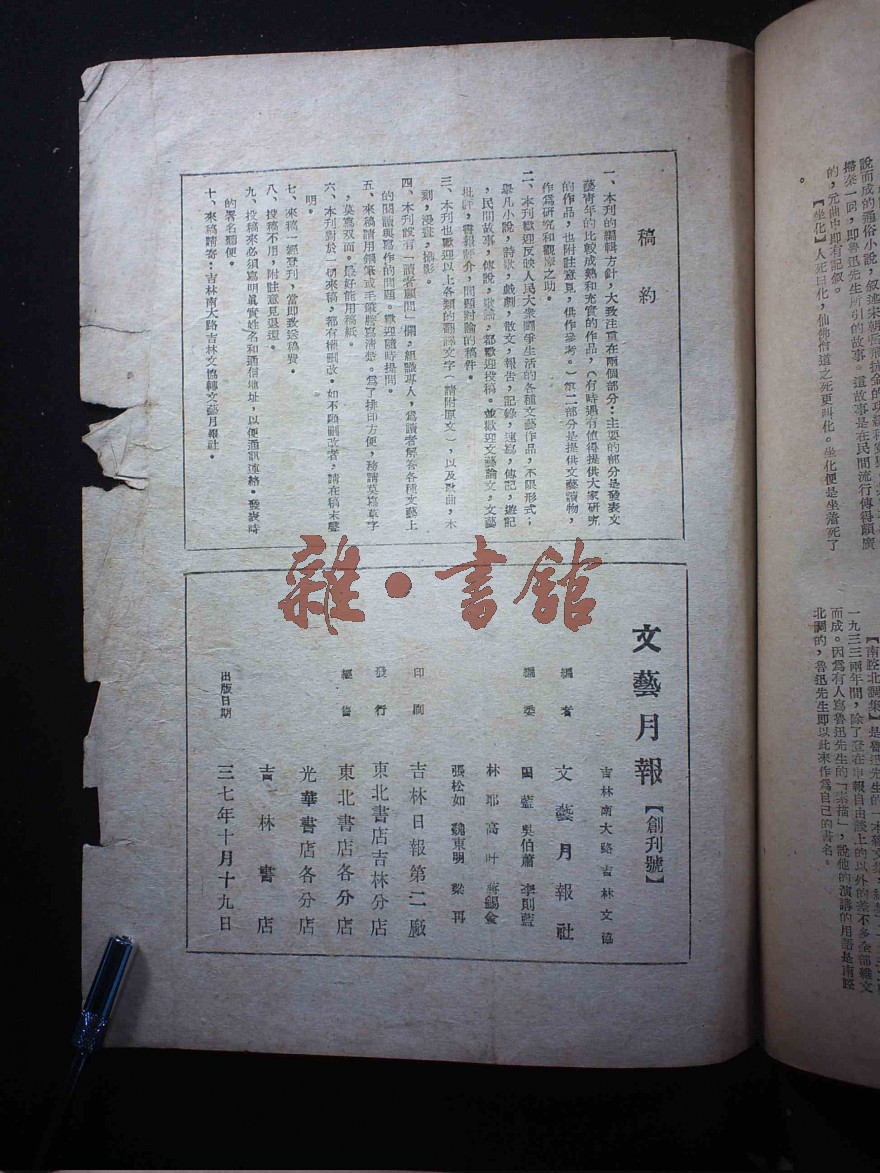 稿約
一、本刊的編輯方針，大致注重在兩個部分：主要的部分是發表文
藝青年的比較成熟和充實的作品，（有時遇有值得提供大家研究
的作品，也附註意見，供作參考。）第二部分是提供文藝讀物，
作爲研究和觀摩之助。
二、本刊歡迎反映人民大衆鬭爭生活的各種文藝作品，不限形式；
舉凡小說，詩歌，戲劇，散文，報告，記錄，速寫，傳記，遊記
，民間故事，傳說，歌謠，都歡迎投稿。並歡迎文藝論文，文藝
批評，書報評介，問題討論的稿件。
三、本刊也歡迎以上各類的翻譯文字（請附原文），以及歌曲，木
刻，漫畫，攝影。
四、本刊設有「讀者顧問」欄，組織專人，爲讀者解答各種文藝上
的閱讀與寫作的問題。歡迎隨時提問。
五、來稿請用鋼筆或毛筆謄寫清楚。爲了排印方便，務請莫寫草字
，莫寫双面。最好能用稿紙。
六、本刊對於一切來稿，都有權刪改。如不願刪改者，請在稿末聲
明。
七、來稿一經登刋，當即致送稿費。
八、投稿不用，附註意見退還。
九、投稿來必須寫明眞實姓名和通信地址，以便通訊連絡。發表時
的署名聽便。
十、來稿請寄：吉林南大路吉林文協轉文藝月報社。
文藝月報【創刊號】
吉林南大路吉林文協
編者 文藝月報社
編委 藍 吳伯蕭 李則藍
林耶 高叶 蔣錫金
張松如 魏東明 梁再
印刷 吉林日報第二廠
發行 東北書店吉林分店
經售 東北書店各分店
光華書店各分店
吉林書店
出版日期 三七年十月十九日
雜·書館
的，元曲中即有記叙。
【坐化】人死曰化，仙佛僧道之死更叫化。坐化便是坐着死了
。
一九三三兩年間，除了登在申報自由談上的以外的差不多全部雜文
而成。因爲有人寫魯迅先生的「素描」，說他的演講的用語是南腔
北調的，魯迅先生即以此來作爲自己的書名。